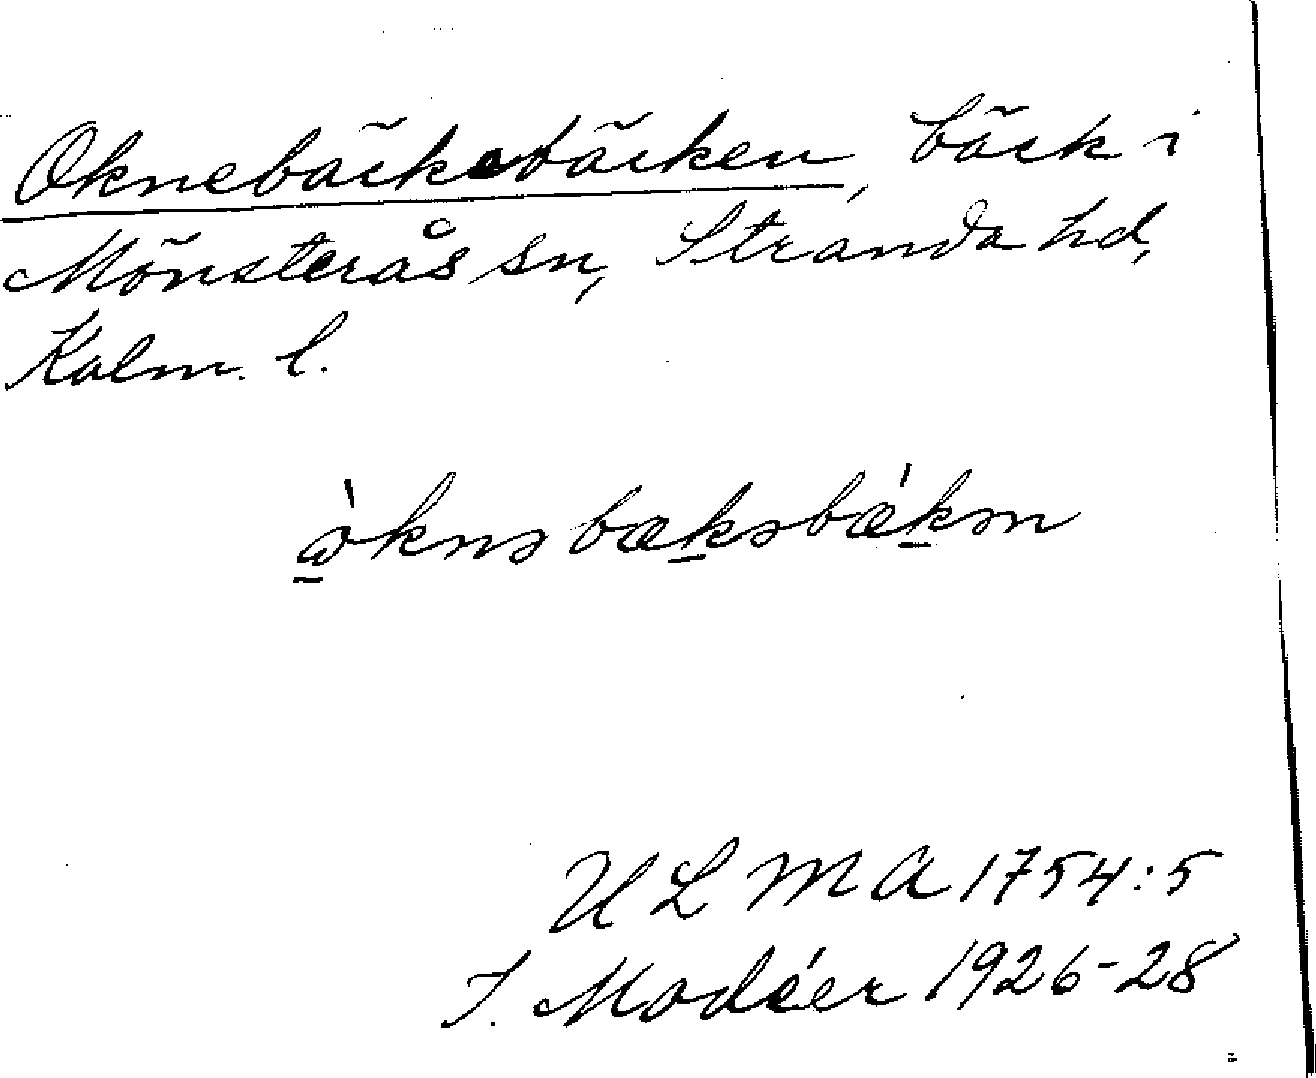 Oknebäckebäcken, bäck i
Mönsterås sn, Stranda hd,
Kalm. l.
ὼknəbækəbǽkən
ULMA 1754:5
I. Modéer 1926-28